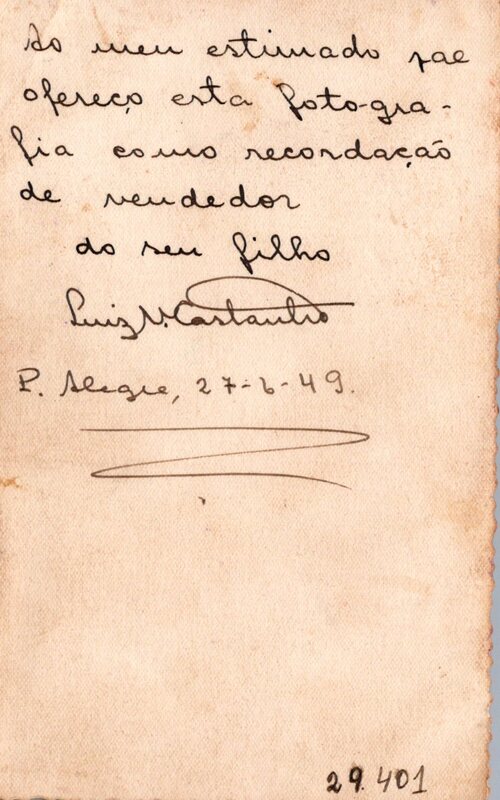 Ao meu estimado pae
ofereço esta foto-gra-
fia como recordação
de vendedor
do seu filho
Luiz V. Castanho
P. Alegre, 27-6-49.
29.401